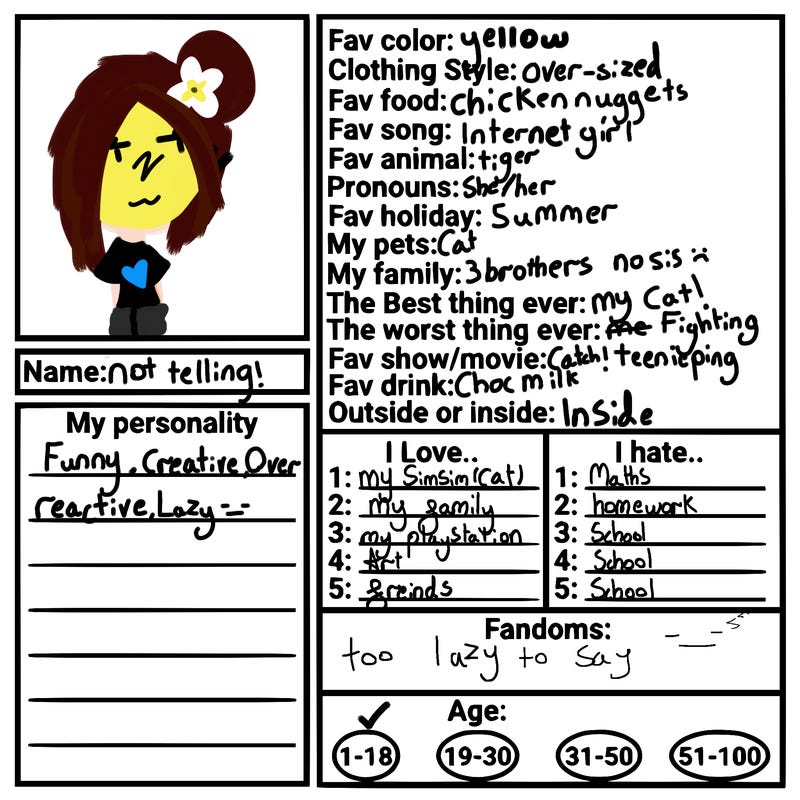 Name:not telling!
My personality
Funny, Creative, Over
reactive, Lazy -_-
Fav color: yellow
Clothing Style: over-sized
Fav food: chicken nuggets
Fav song: Internet girl
Fav animal: tiger
Pronouns: She/her
Fav holiday: Summer
My pets: Cat
My family: 3 brothers no sis :(
The Best thing ever: my Cat!
The worst thing ever: me Fighting
Fav show/movie: Catch! teenieping
Fav drink: Choc milk
Outside or inside: Inside
I Love..
1: my Simsim (Cat)
2: my family
3: my playstation
4: Art
5: freinds
I hate..
1: Maths
2: homework
3: School
4: School
5: School
Fandoms:
too lazy to say -_- zzz
Age:
1-18 19-30 31-50 51-100